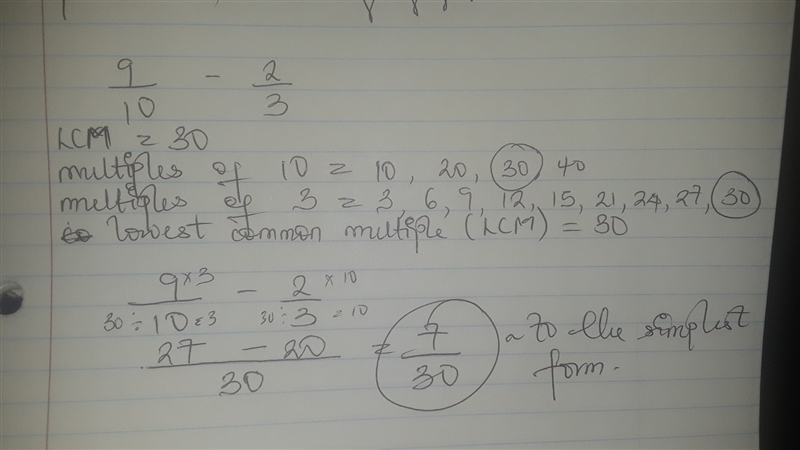 9/10 - 2/3
LCM = 30
multiples of 10 = 10, 20, 30 40
multiples of 3 = 3, 6, 9, 12, 15, 21, 24, 27, 30
lowest common multiple (LCM) = 30
9×3 - 2×10
30÷10=3 30÷3=10
27 - 20 / 30 = 7/30 to the simplest
form.